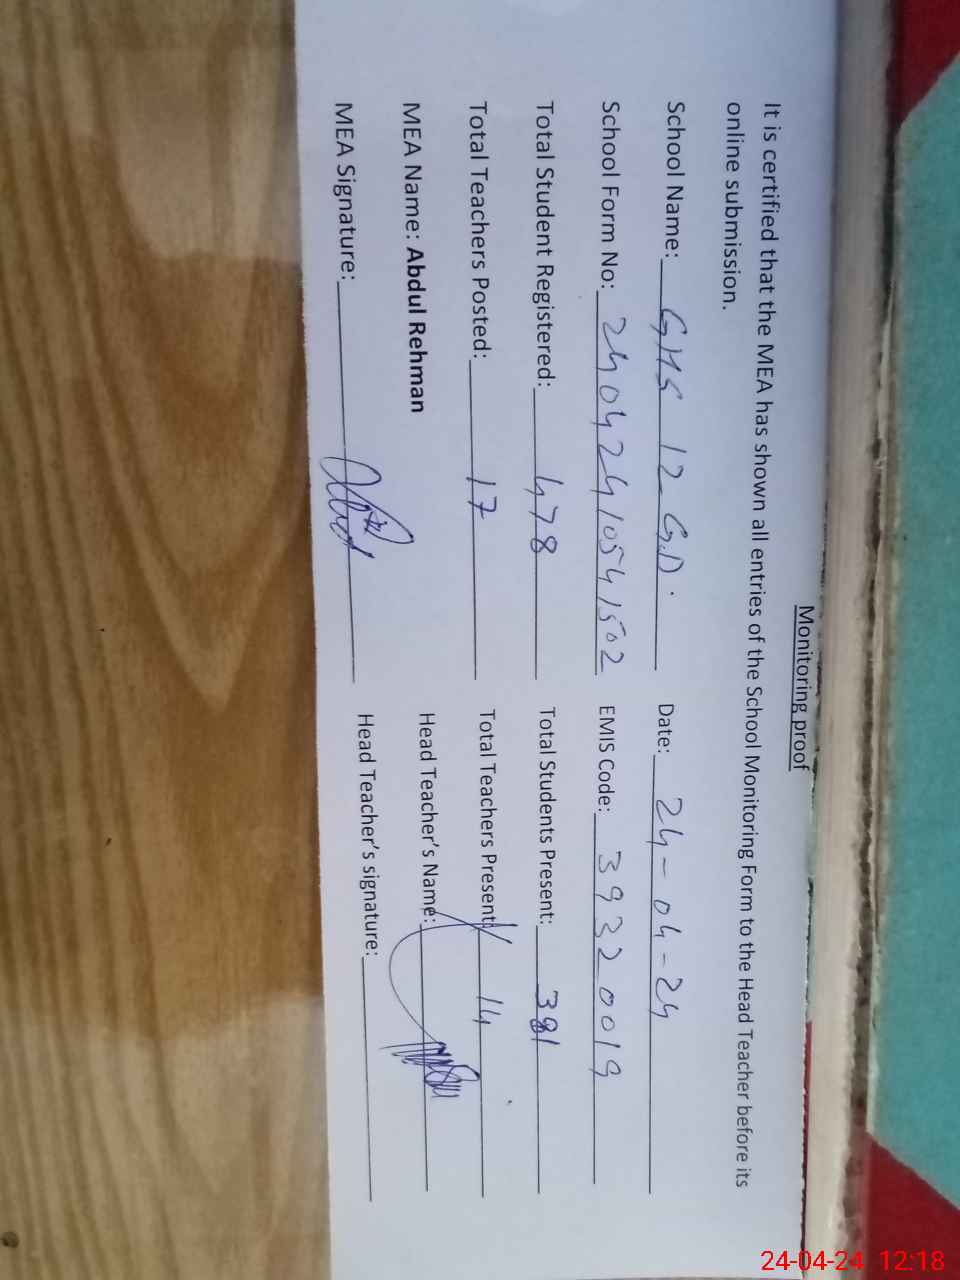 Monitoring proof
It is certified that the MEA has shown all entries of the School Monitoring Form to the Head Teacher before its
online submission.
School Name: GHS 12-G.D. Date: 24-04-24
School Form No: 24042410541502 EMIS Code: 39320019
Total Student Registered: 478 Total Students Present: 381
Total Teachers Posted: 17 Total Teachers Present: 14
MEA Name: Abdul Rehman Head Teacher's Name:
MEA Signature: Head Teacher's signature:
24-04-24 12:18